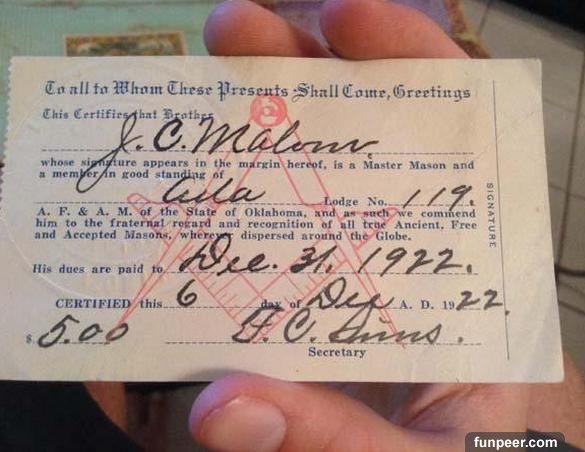 To all to Whom These Presents Shall Come, Greetings
This Certifies that Brother
J. C. Malone
whose signature appears in the margin hereof, is a Master Mason and
a member in good standing of
Ada Lodge No. 119.
A. F. & A. M. of the State of Oklahoma, and as such we commend
him to the fraternal regard and recognition of all true Ancient, Free
and Accepted Masons, wherever dispersed around the Globe.
His dues are paid to Dec. 31. 1922.
CERTIFIED this 6 day of Dec A. D. 1922.
$5.00 F. C. Sims.
Secretary
SIGNATURE
funpeer.com